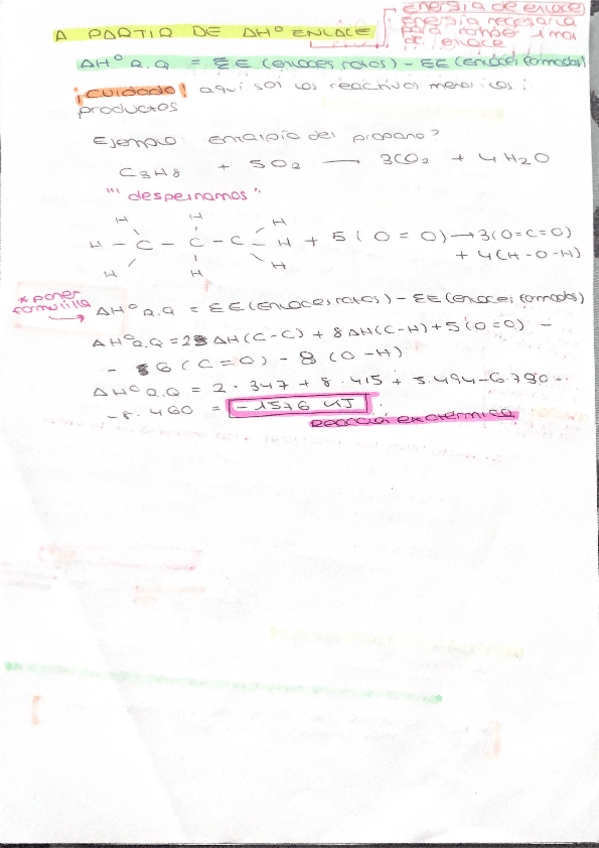 A PARTIR DE ΔHº ENLACE
energía de enlace
energía necesaria
para romper 1 mol
de enlace
ΔHº R.Q = ΣE (enlaces rotos) - ΣE (enlaces formados)
¡cuidado! aquí son los reactivos menos los
productos
Ejemplo: entalpía del propano?
C3H8 + 5O2 → 3CO2 + 4H2O
"despeinamos"
H H H
H - C - C - C - H + 5 (O = O) → 3(O=C=O)
+ 4(H-O-H)
H H H
*poner
formulilla
ΔHº R.Q = ΣE (enlaces rotos) - ΣE (enlaces formados)
ΔHº R.Q = 2 ΔH(C-C) + 8 ΔH(C-H) + 5 (O=O) -
- 6 (C=O) - 8 (O-H)
ΔHº R.Q = 2 · 347 + 8 · 415 + 5 · 494 - 6 · 730 -
- 8 · 460 = - 1576 kJ
reacción exotérmica